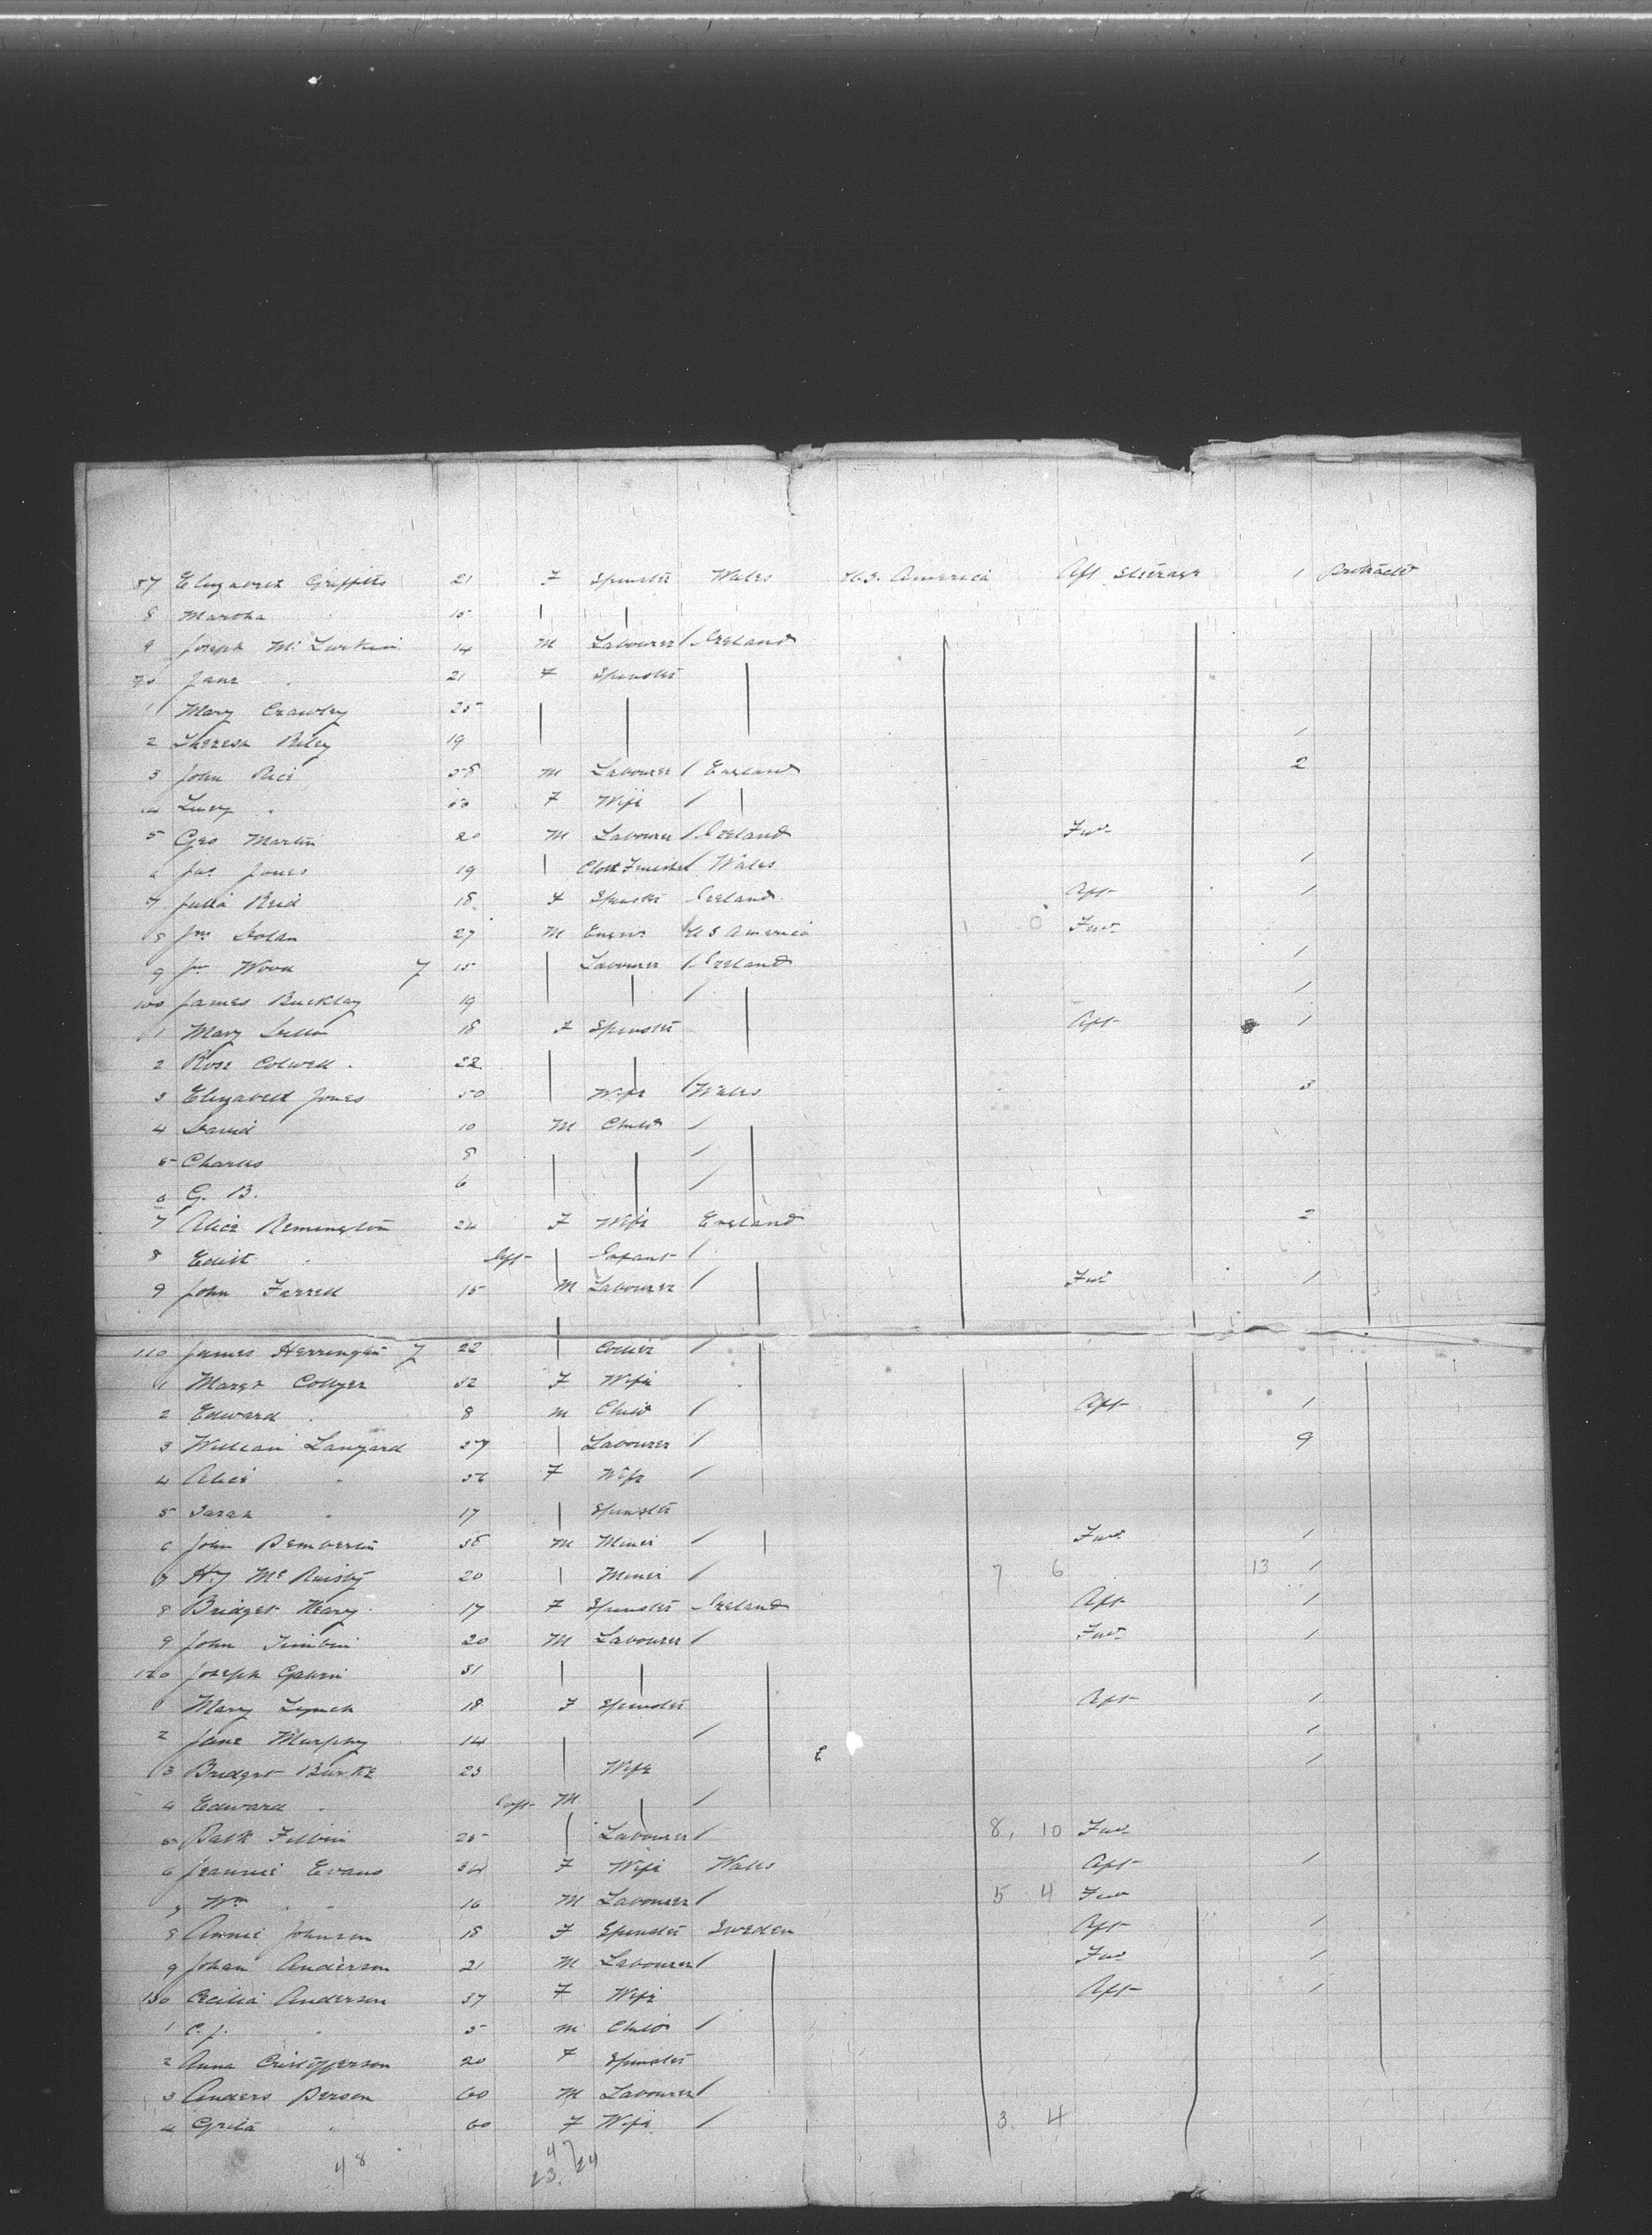 87 Elizabeth Griffiths 21 F Spinster Wales U.S. America Aft Steerage 1 Protracted
8 Martha 15
9 Joseph Mc 14 M Labourer / Ireland
90 Jane " 21 F Spinster
1 Mary Crawley 25
2 Theresa Riley 19 1
3 John Rice 58 M Labourer / England 2
4 Lucy " F Wife /
5 Geo Martin 20 M Labourer / Ireland Fwd
6 Jas Jones 19 Cloth Finisher / Wales 1
7 Julia Reid 18 F Spinster Ireland Aft 1
8 Jno Dolan 27 M U S America 1 0 Fwd
9 Jno Wood 7 15 Labourer / Ireland 1
100 James Buckley 19 / 1
1 Mary 18 F Spinster Aft 1
2 Rose Colwell 22
3 Elizabeth Jones 50 Wife / Wales 3
4 David 10 M Child /
5 Charles 8 /
6 G. B. 6 /
7 Alice Remington 24 F Wife England 2
8 Edith " Inft Infant /
9 John Farrell 15 M Labourer / Fwd 1
110 James Herrington 7 22 Collier /
1 Margt Collyer 32 F Wife
2 Edward " 8 M Child / Aft 1
3 William Lanyard 37 Labourer / 9
4 Alice " 36 F Wife /
5 Sarah " 17 Spinster
6 John Pemberton 38 M Miner / Fwd 1
7 Hy Mc 20 Miner / 7 6 13 1
8 Bridget Neary 17 F Spinster Ireland Aft 1
9 John 20 M Labourer / Fwd 1
120 Joseph 31
1 Mary Lynch 18 F Spinster Aft 1
2 Jane Murphy 14 / 1
3 Bridget Burke 23 Wife 1
4 Edward " Inft M /
5 Patk Filbin 25 Labourer / 8, 10 Fwd
6 Jeannie Evans 34 F Wife Wales Aft 1
7 Wm " " 16 M Labourer / 5 4 Fwd
8 Annie Johnson 18 F Spinster Sweden Aft 1
9 Johan Anderson 21 M Labourer / Fwd 1
130 Cecilia Anderson 37 F Wife Aft 1
1 C. J. " 5 M Child /
2 Anna Cristofferson 20 F Spinster
3 Anders Person 60 M Labourer /
4 Greta " 60 F Wife / 3. 4
48 47
23. 24